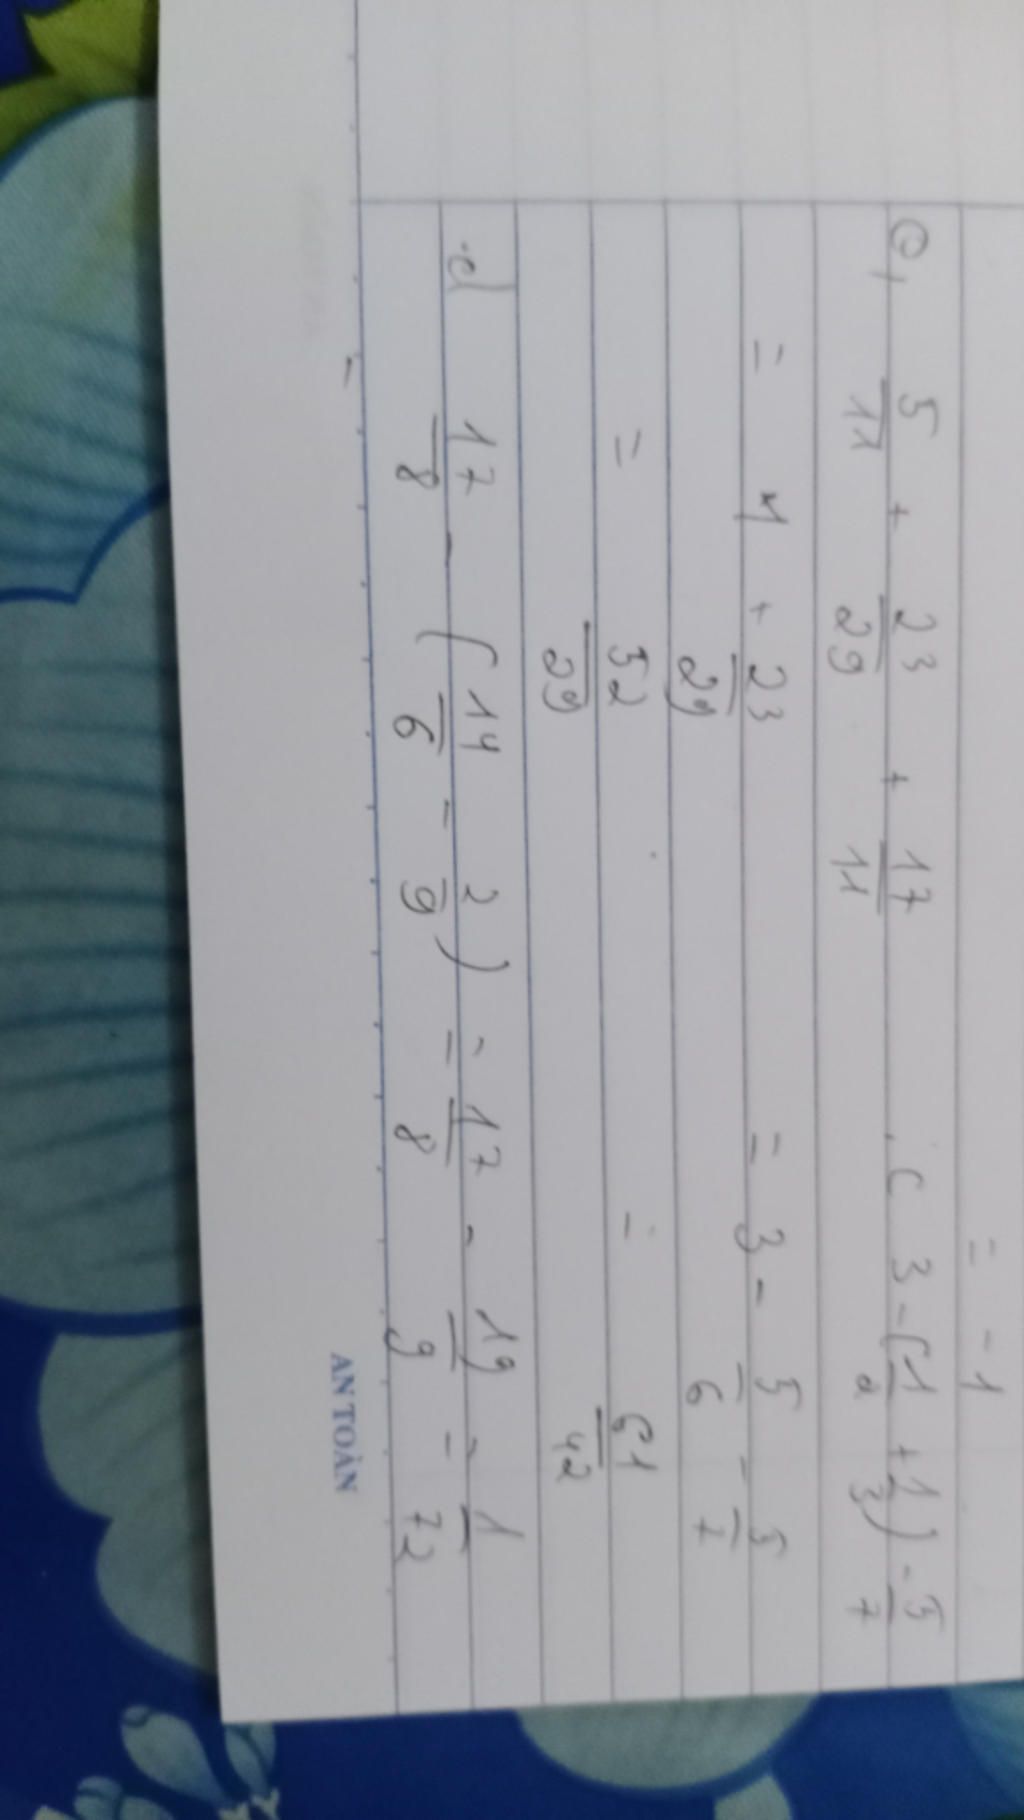 = -1
5/11 + 23/29 + 17/11
c 3 - (1/2 + 1/3) - 5/7
= 1 + 23/29
= 3 - 5/6 - 5/7
= 52/29
= 61/42
d 17/8 - (14/6 - 2/9) = 17/8 - 19/9 = 1/72
AN TOÀN